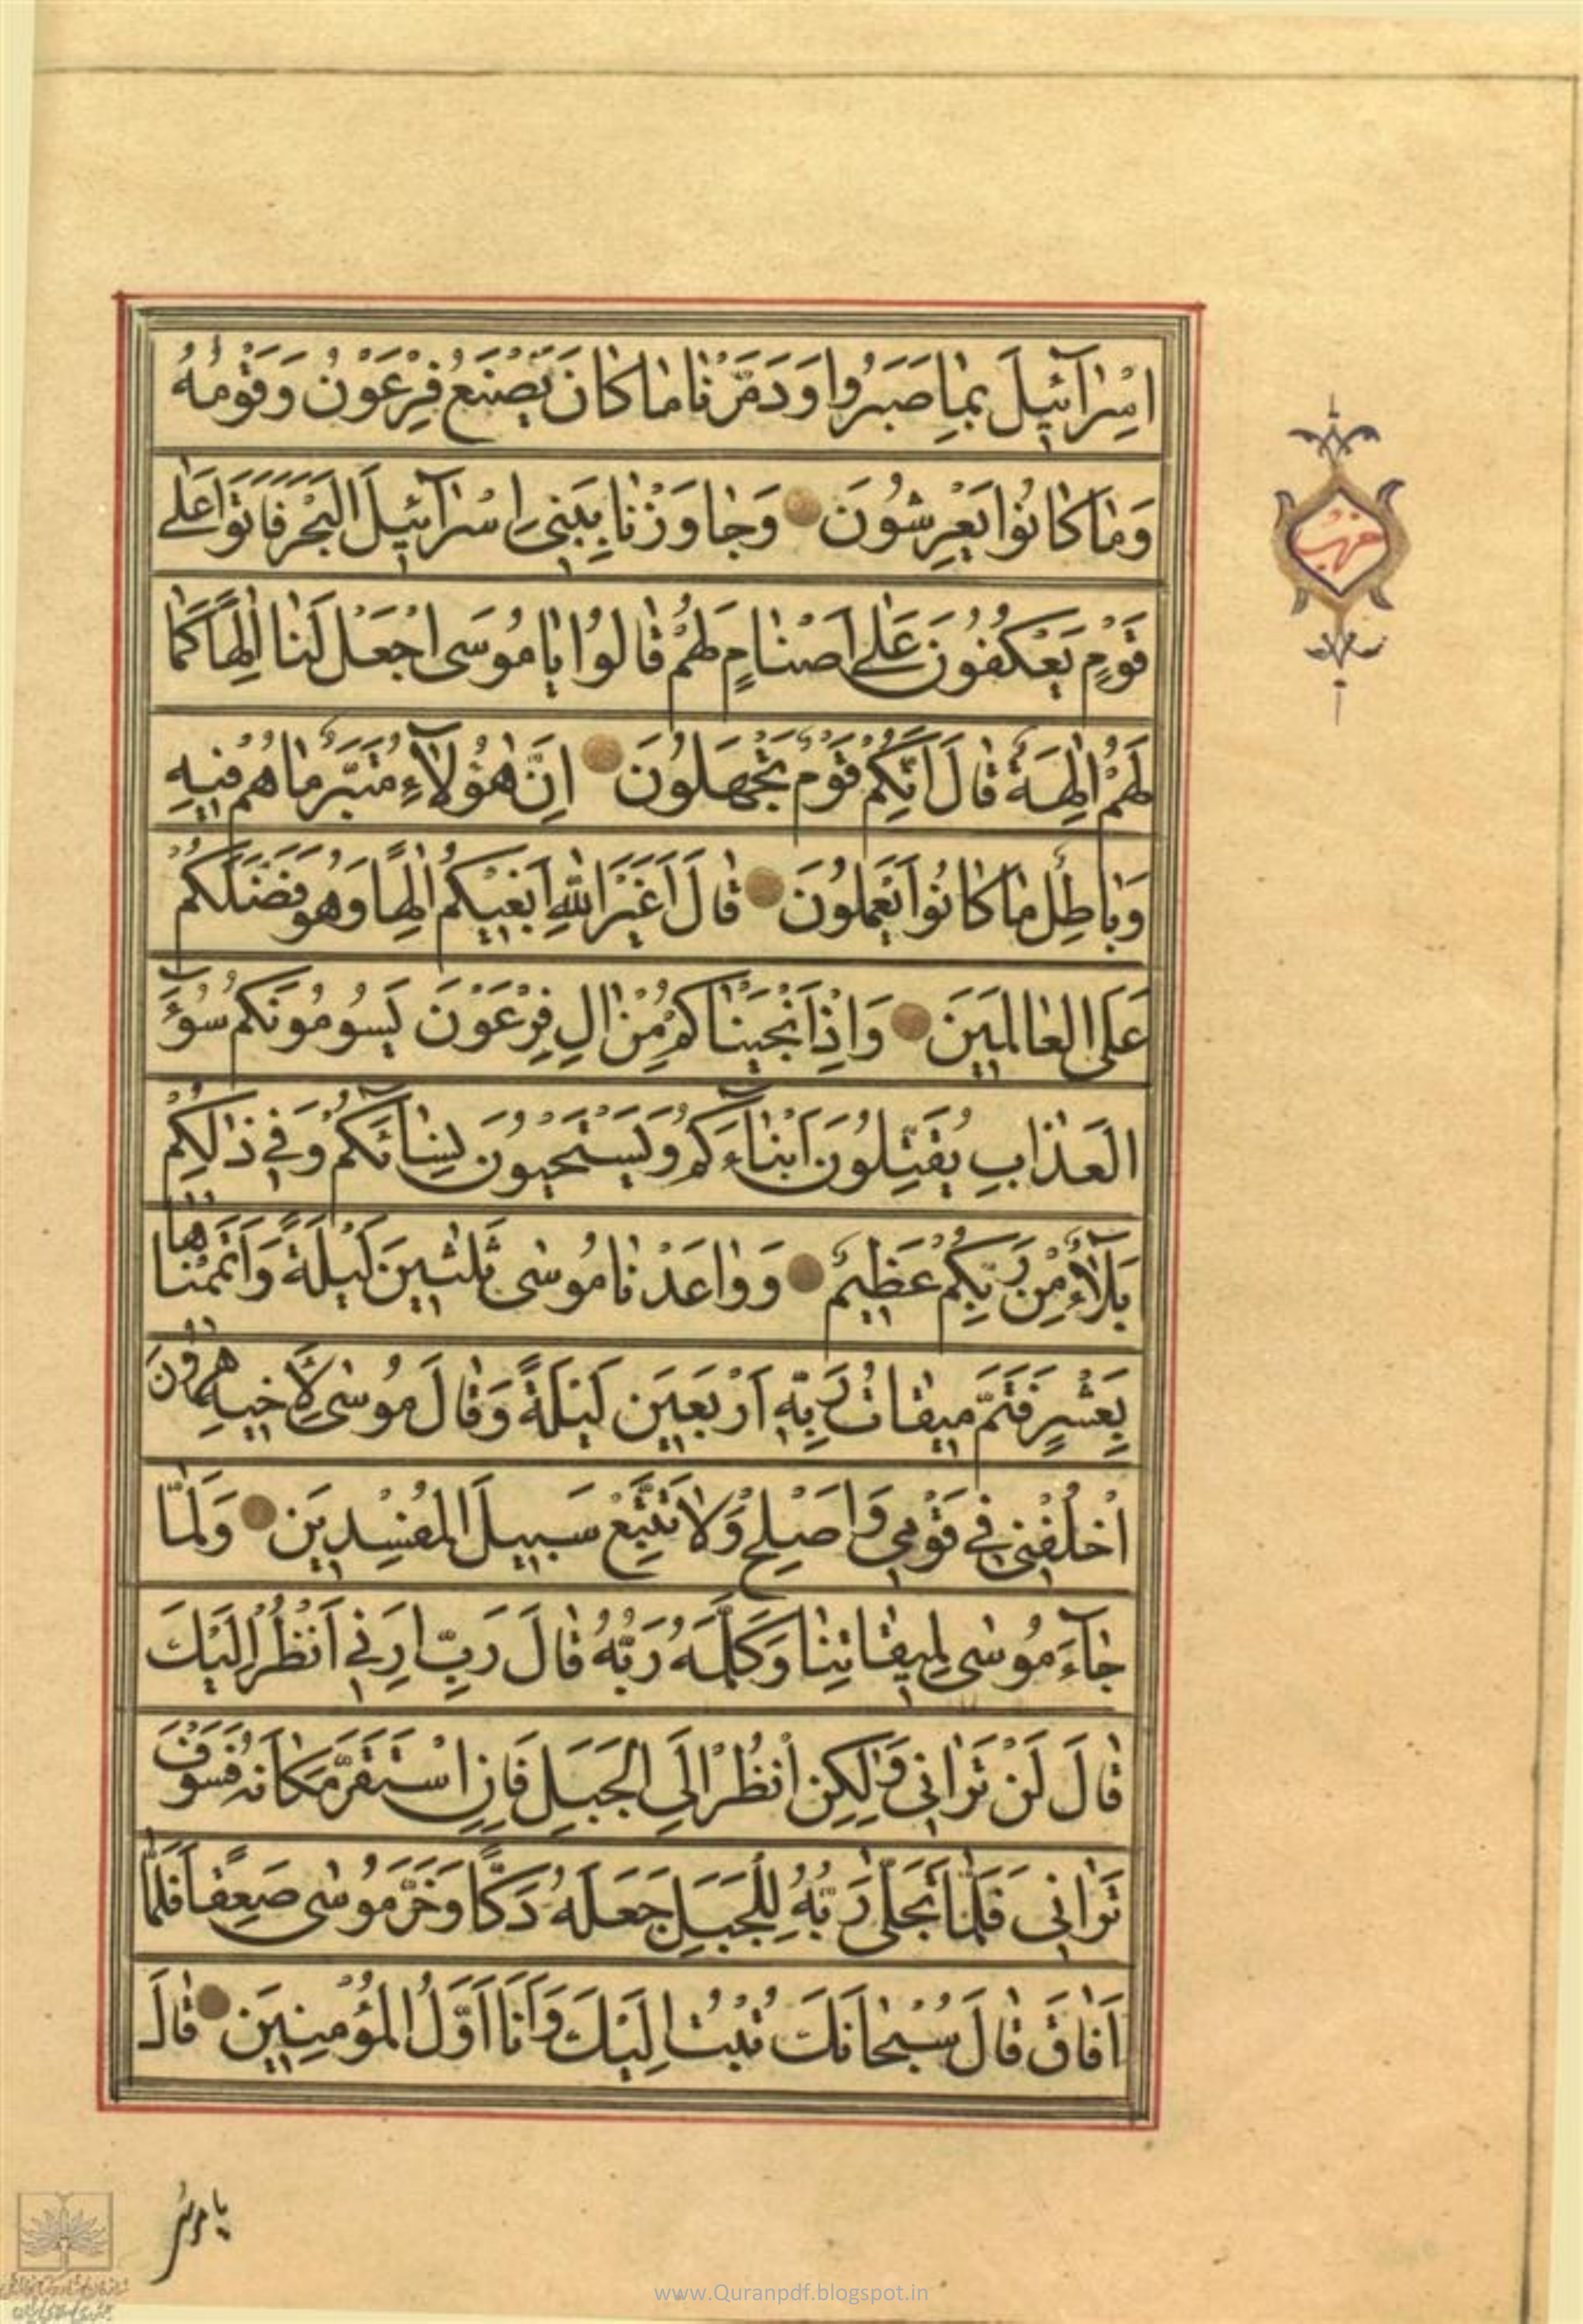 اِسْرٰٓآئٖيلَ بِمٰا صَبَرُوا وَدَمَّرْنٰا مٰا كٰانَ يَصْنَعُ فِرْعَوْنُ وَقَوْمُهُ
وَمٰا كٰانُوا يَعْرِشُونَ وَجٰاوَزْنٰا بِبَنٖى اِسْرٰٓآئٖيلَ الْبَحْرَ فَاَتَوْا عَلٰى
قَوْمٍ يَعْكُفُونَ عَلٰى اَصْنٰامٍ لَهُمْ قٰالُوا يٰا مُوسَى اجْعَلْ لَنٰا اِلٰهًا كَمٰا
لَهُمْ اٰلِهَةٌ قٰالَ اِنَّكُمْ قَوْمٌ تَجْهَلُونَ اِنَّ هٰؤُلَآءِ مُتَبَّرٌ مٰا هُمْ فٖيهِ
وَبٰاطِلٌ مٰا كٰانُوا يَعْمَلُونَ قٰالَ اَغَيْرَ اللّٰهِ اَبْغٖيكُمْ اِلٰهًا وَهُوَ فَضَّلَكُمْ
عَلَى الْعٰالَمٖينَ وَاِذْ اَنْجَيْنٰاكُمْ مِنْ اٰلِ فِرْعَوْنَ يَسُومُونَكُمْ سُوٓءَ
الْعَذٰابِ يُقَتِّلُونَ اَبْنٰآءَكُمْ وَيَسْتَحْيُونَ نِسٰآئَكُمْ وَفٖى ذٰلِكُمْ
بَلَآءٌ مِنْ رَبِّكُمْ عَظٖيمٌ وَوٰاعَدْنٰا مُوسٰى ثَلٰثٖينَ لَيْلَةً وَاَتْمَمْنٰاهٰا
بِعَشْرٍ فَتَمَّ مٖيقٰاتُ رَبِّهٖ اَرْبَعٖينَ لَيْلَةً وَقٰالَ مُوسٰى لِاَخٖيهِ هٰرُونَ
اخْلُفْنٖى فٖى قَوْمٖى وَاَصْلِحْ وَلٰا تَتَّبِعْ سَبٖيلَ الْمُفْسِدٖينَ وَلَمّٰا
جٰآءَ مُوسٰى لِمٖيقٰاتِنٰا وَكَلَّمَهُ رَبُّهُ قٰالَ رَبِّ اَرِنٖى اَنْظُرْ اِلَيْكَ
قٰالَ لَنْ تَرٰانٖى وَلٰكِنِ انْظُرْ اِلَى الْجَبَلِ فَاِنِ اسْتَقَرَّ مَكٰانَهُ فَسَوْفَ
تَرٰانٖى فَلَمّٰا تَجَلّٰى رَبُّهُ لِلْجَبَلِ جَعَلَهُ دَكًّا وَخَرَّ مُوسٰى صَعِقًا فَلَمّٰا
اَفٰاقَ قٰالَ سُبْحٰانَكَ تُبْتُ اِلَيْكَ وَاَنَا اَوَّلُ الْمُؤْمِنٖينَ قٰالَ
حزب
يا موسى
www.Quranpdf.blogspot.in